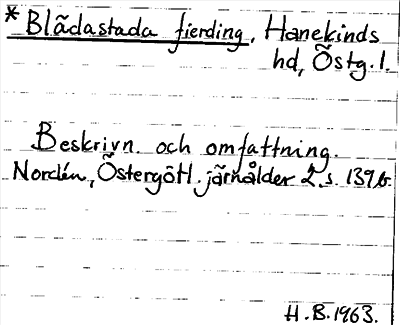 * Blãdastada fierding, Hanekinds
hd, Östg. l.
Beskrivn. och omfattning.
Nordén, Östergötl. järnålder 2 s. 139 b.
H.B. 1963.